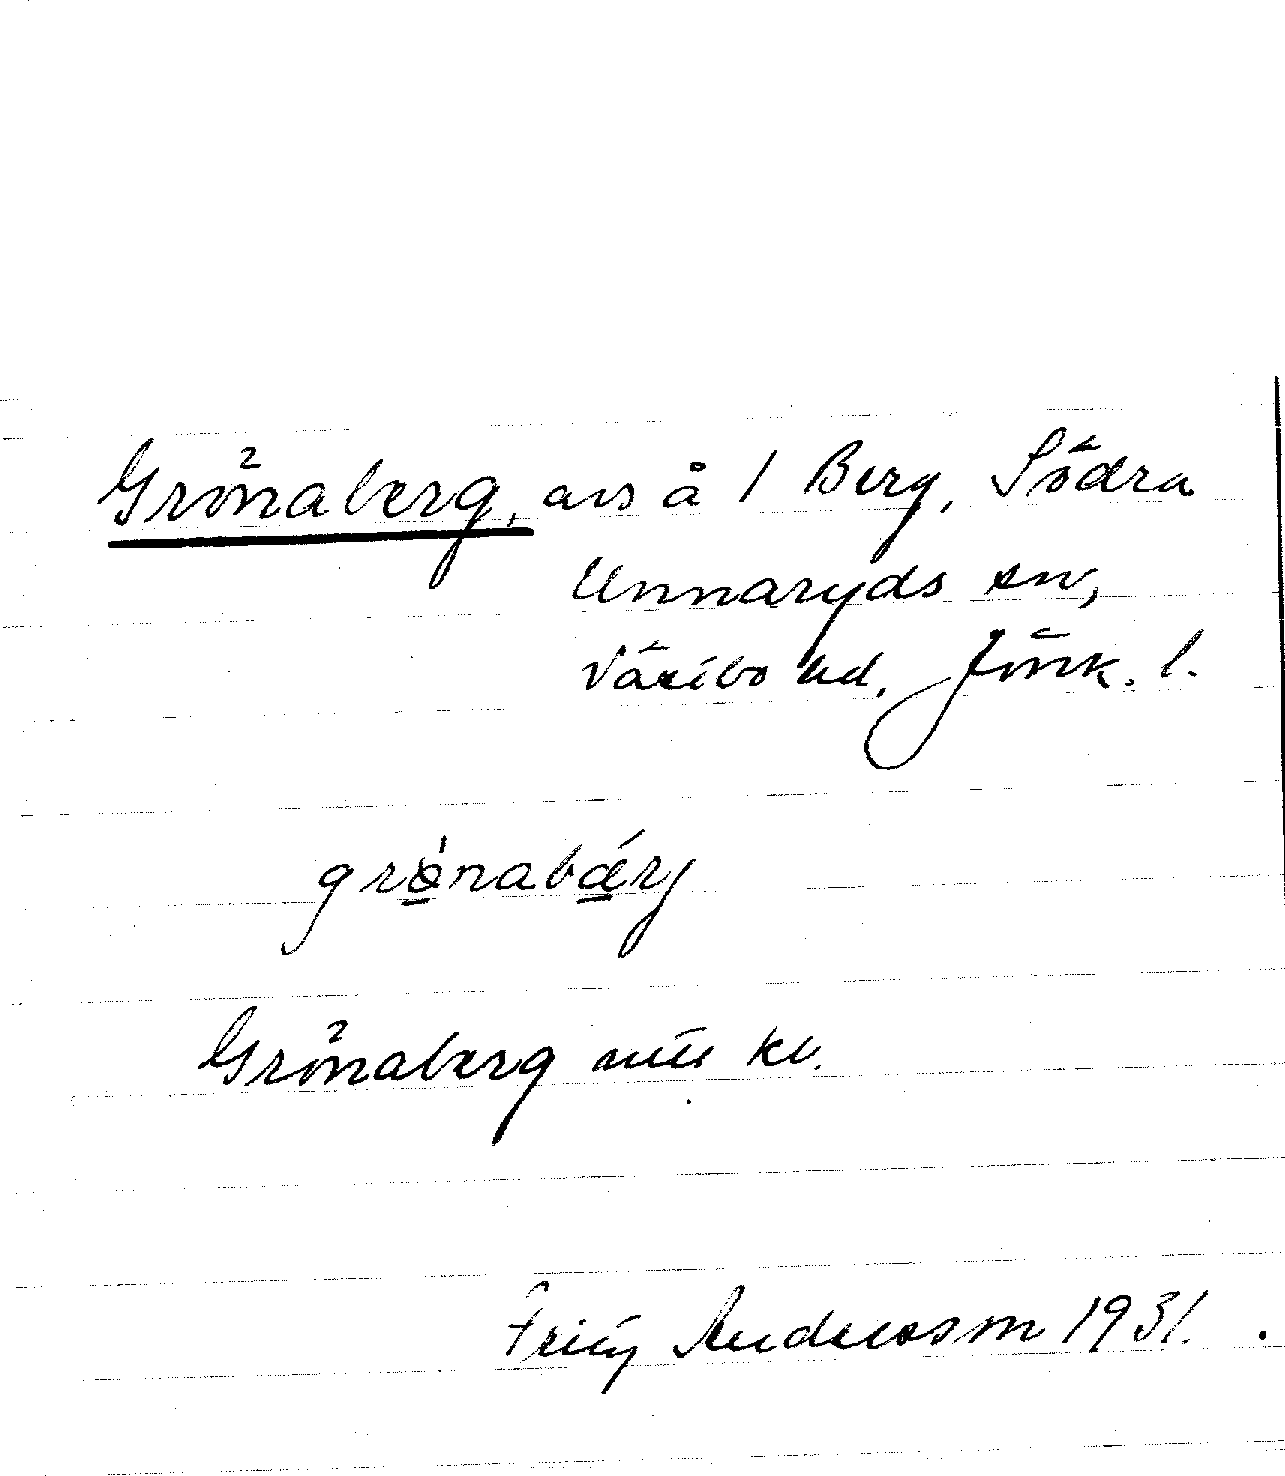 Grönaberg, avs å 1 Berg, Södra
Unnaryds sn,
Västbo hd, Jönk. l.
grönabärj
Grönaberg kv.
Andersson 1931.